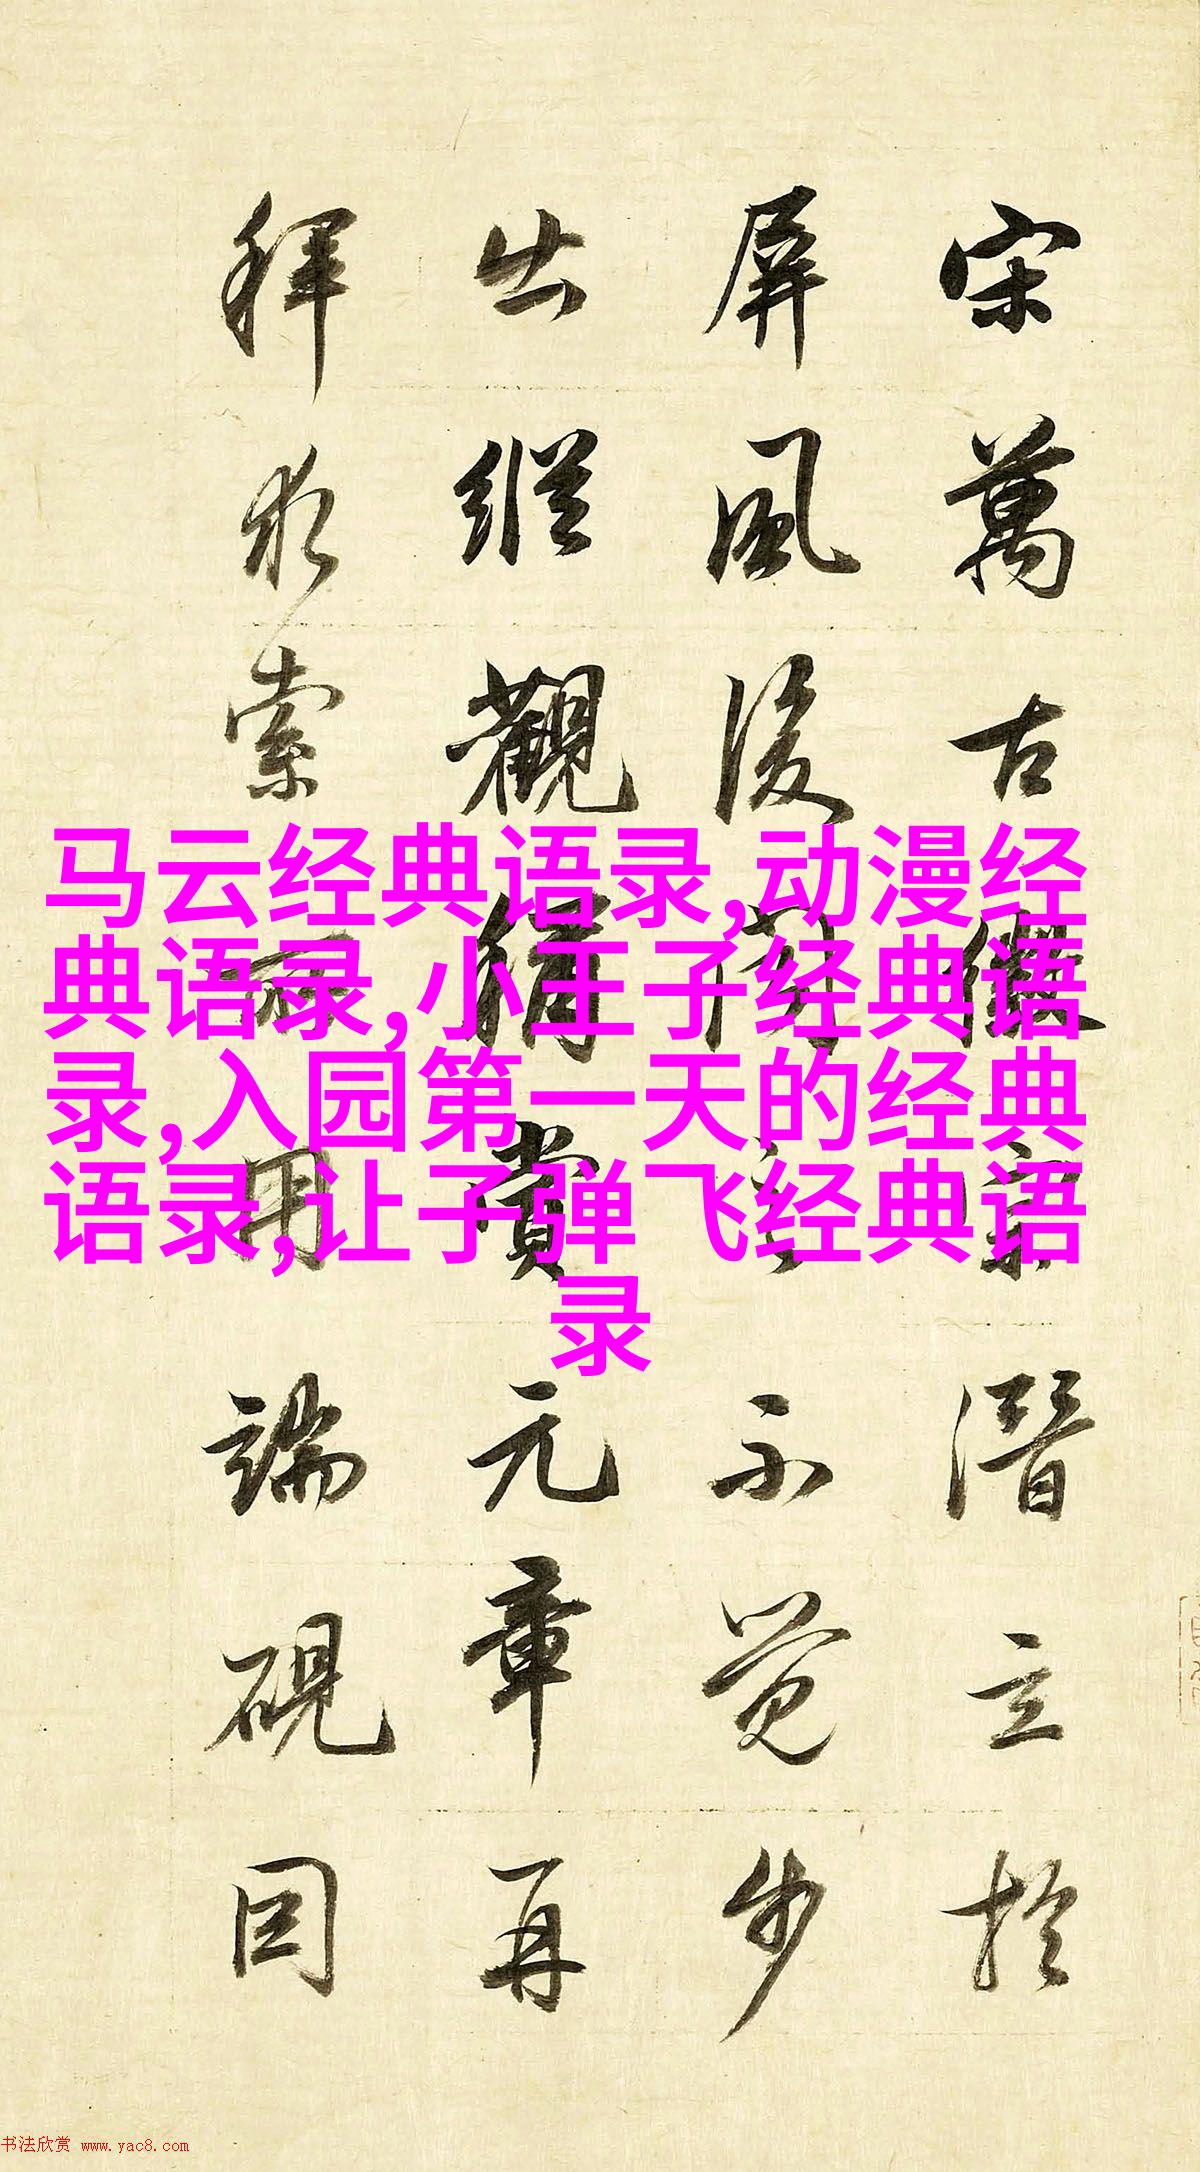 宋萬古徽宗潛立於
屏風後閱之不覺步
出縱觀稱賞元章再
拜求索所用端硯因
马云经典语录,动漫经
典语录,小王子经典语
录,入园第一天的经典
语录,让子弹飞经典语
录
书法欣赏 www.yac8.com